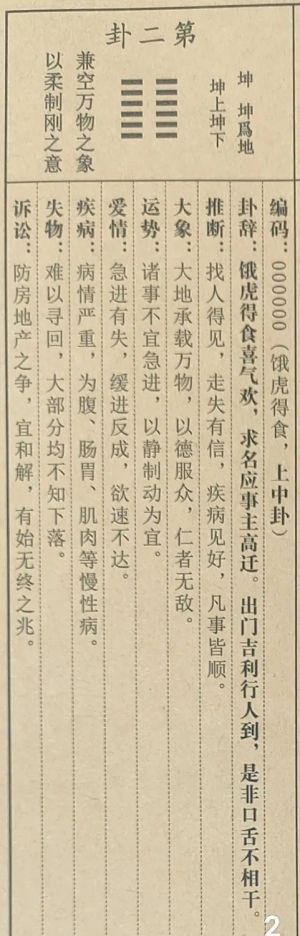 第二卦
坤 坤爲地
坤上坤下
兼空万物之象
以柔制刚之意
编码：000000（饿虎得食，上中卦）
卦辞：饿虎得食喜气欢，求名应事主高迁。出门吉利行人到，是非口舌不相干。
推断：找人得见，走失有信，疾病见好，凡事皆顺。
大象：大地承载万物，以德服众，仁者无敌。
运势：诸事不宜急进，以静制动为宜。
爱情：急进有失，缓进反成，欲速不达。
疾病：病情严重，为腹、肠胃、肌肉等慢性病。
失物：难以寻回，大部分均不知下落。
诉讼：防房地产之争，宜和解，有始无终之兆。
2